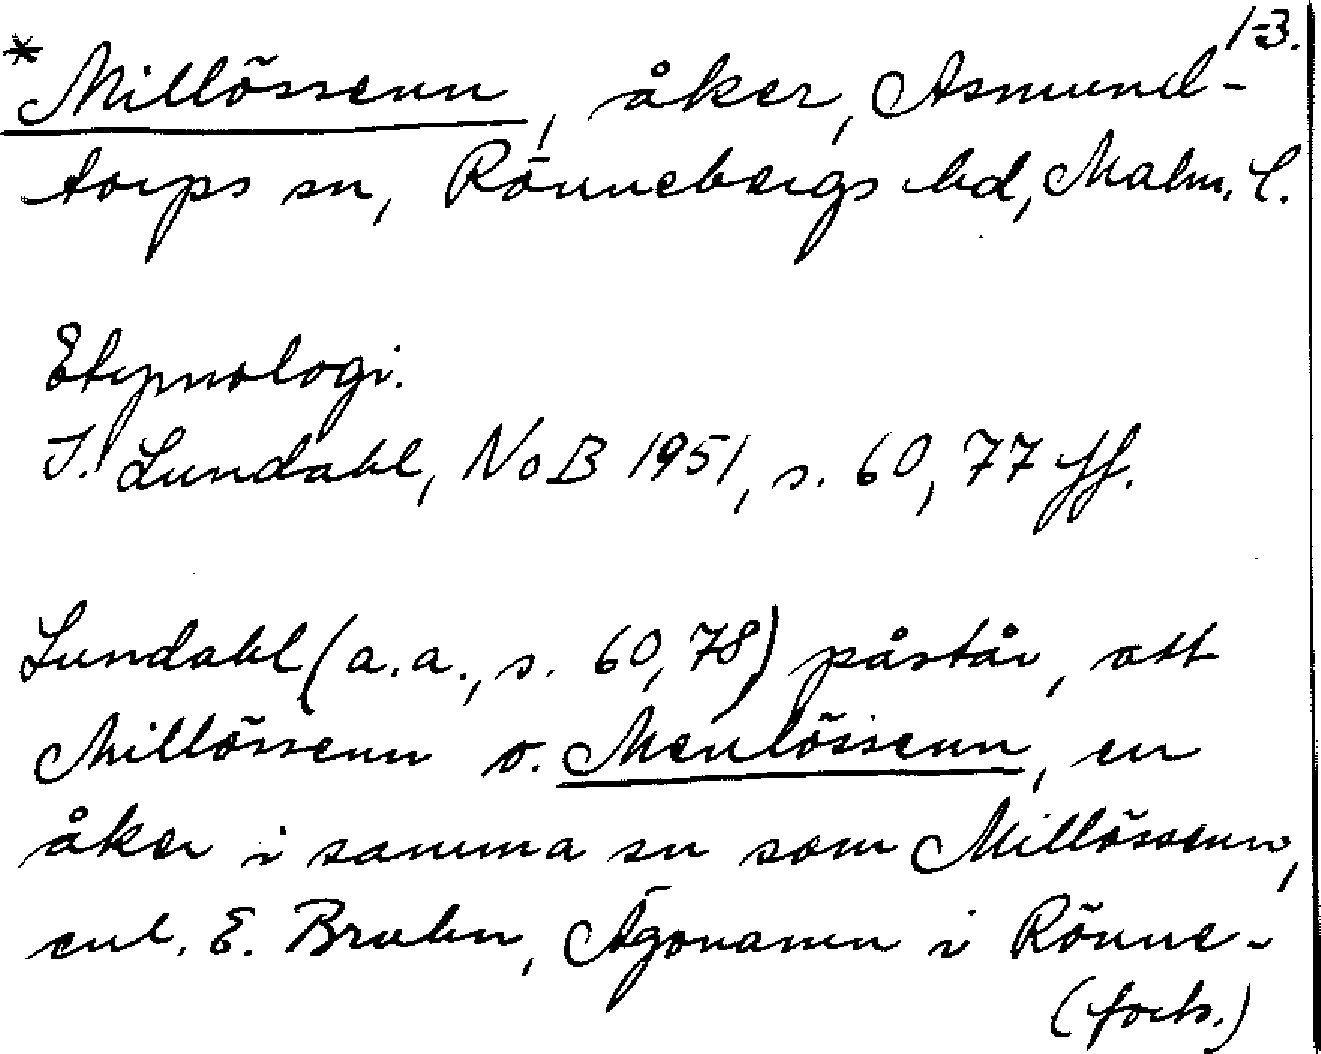 1-3.
* Millössenn, åker, Asmund-
torps sn, Rönnebergs hd, Malm. l.
Etymologi.
I. Lundahl, NoB 1951, s. 60, 77 ff.
Lundahl (a.a., s. 60, 78) påstår, att
Millössenn o. Menlössenn, en
åker i samma sn som Millössenn,
enl. E. Bruhn, Ägonamn i Rönne-
(forts.)